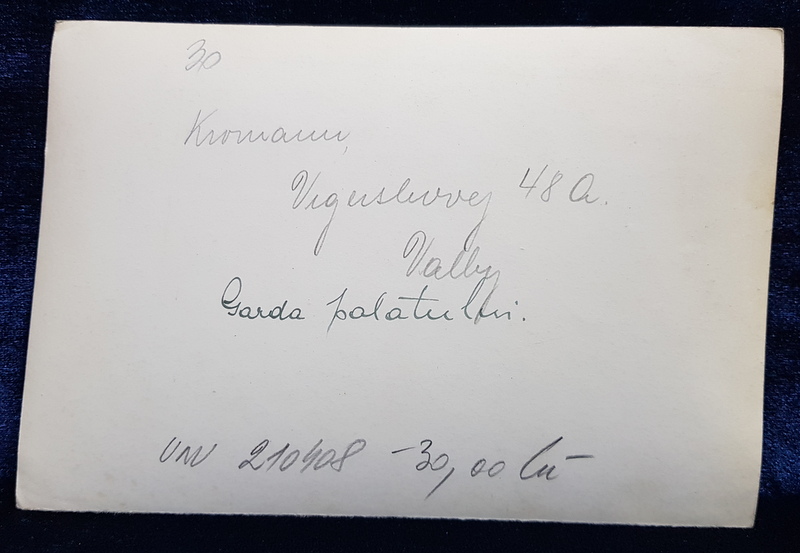 30
Kromann,
Vigerslevvej 48 A.
Valby
Garda palatului.
210408 -30,00 lei